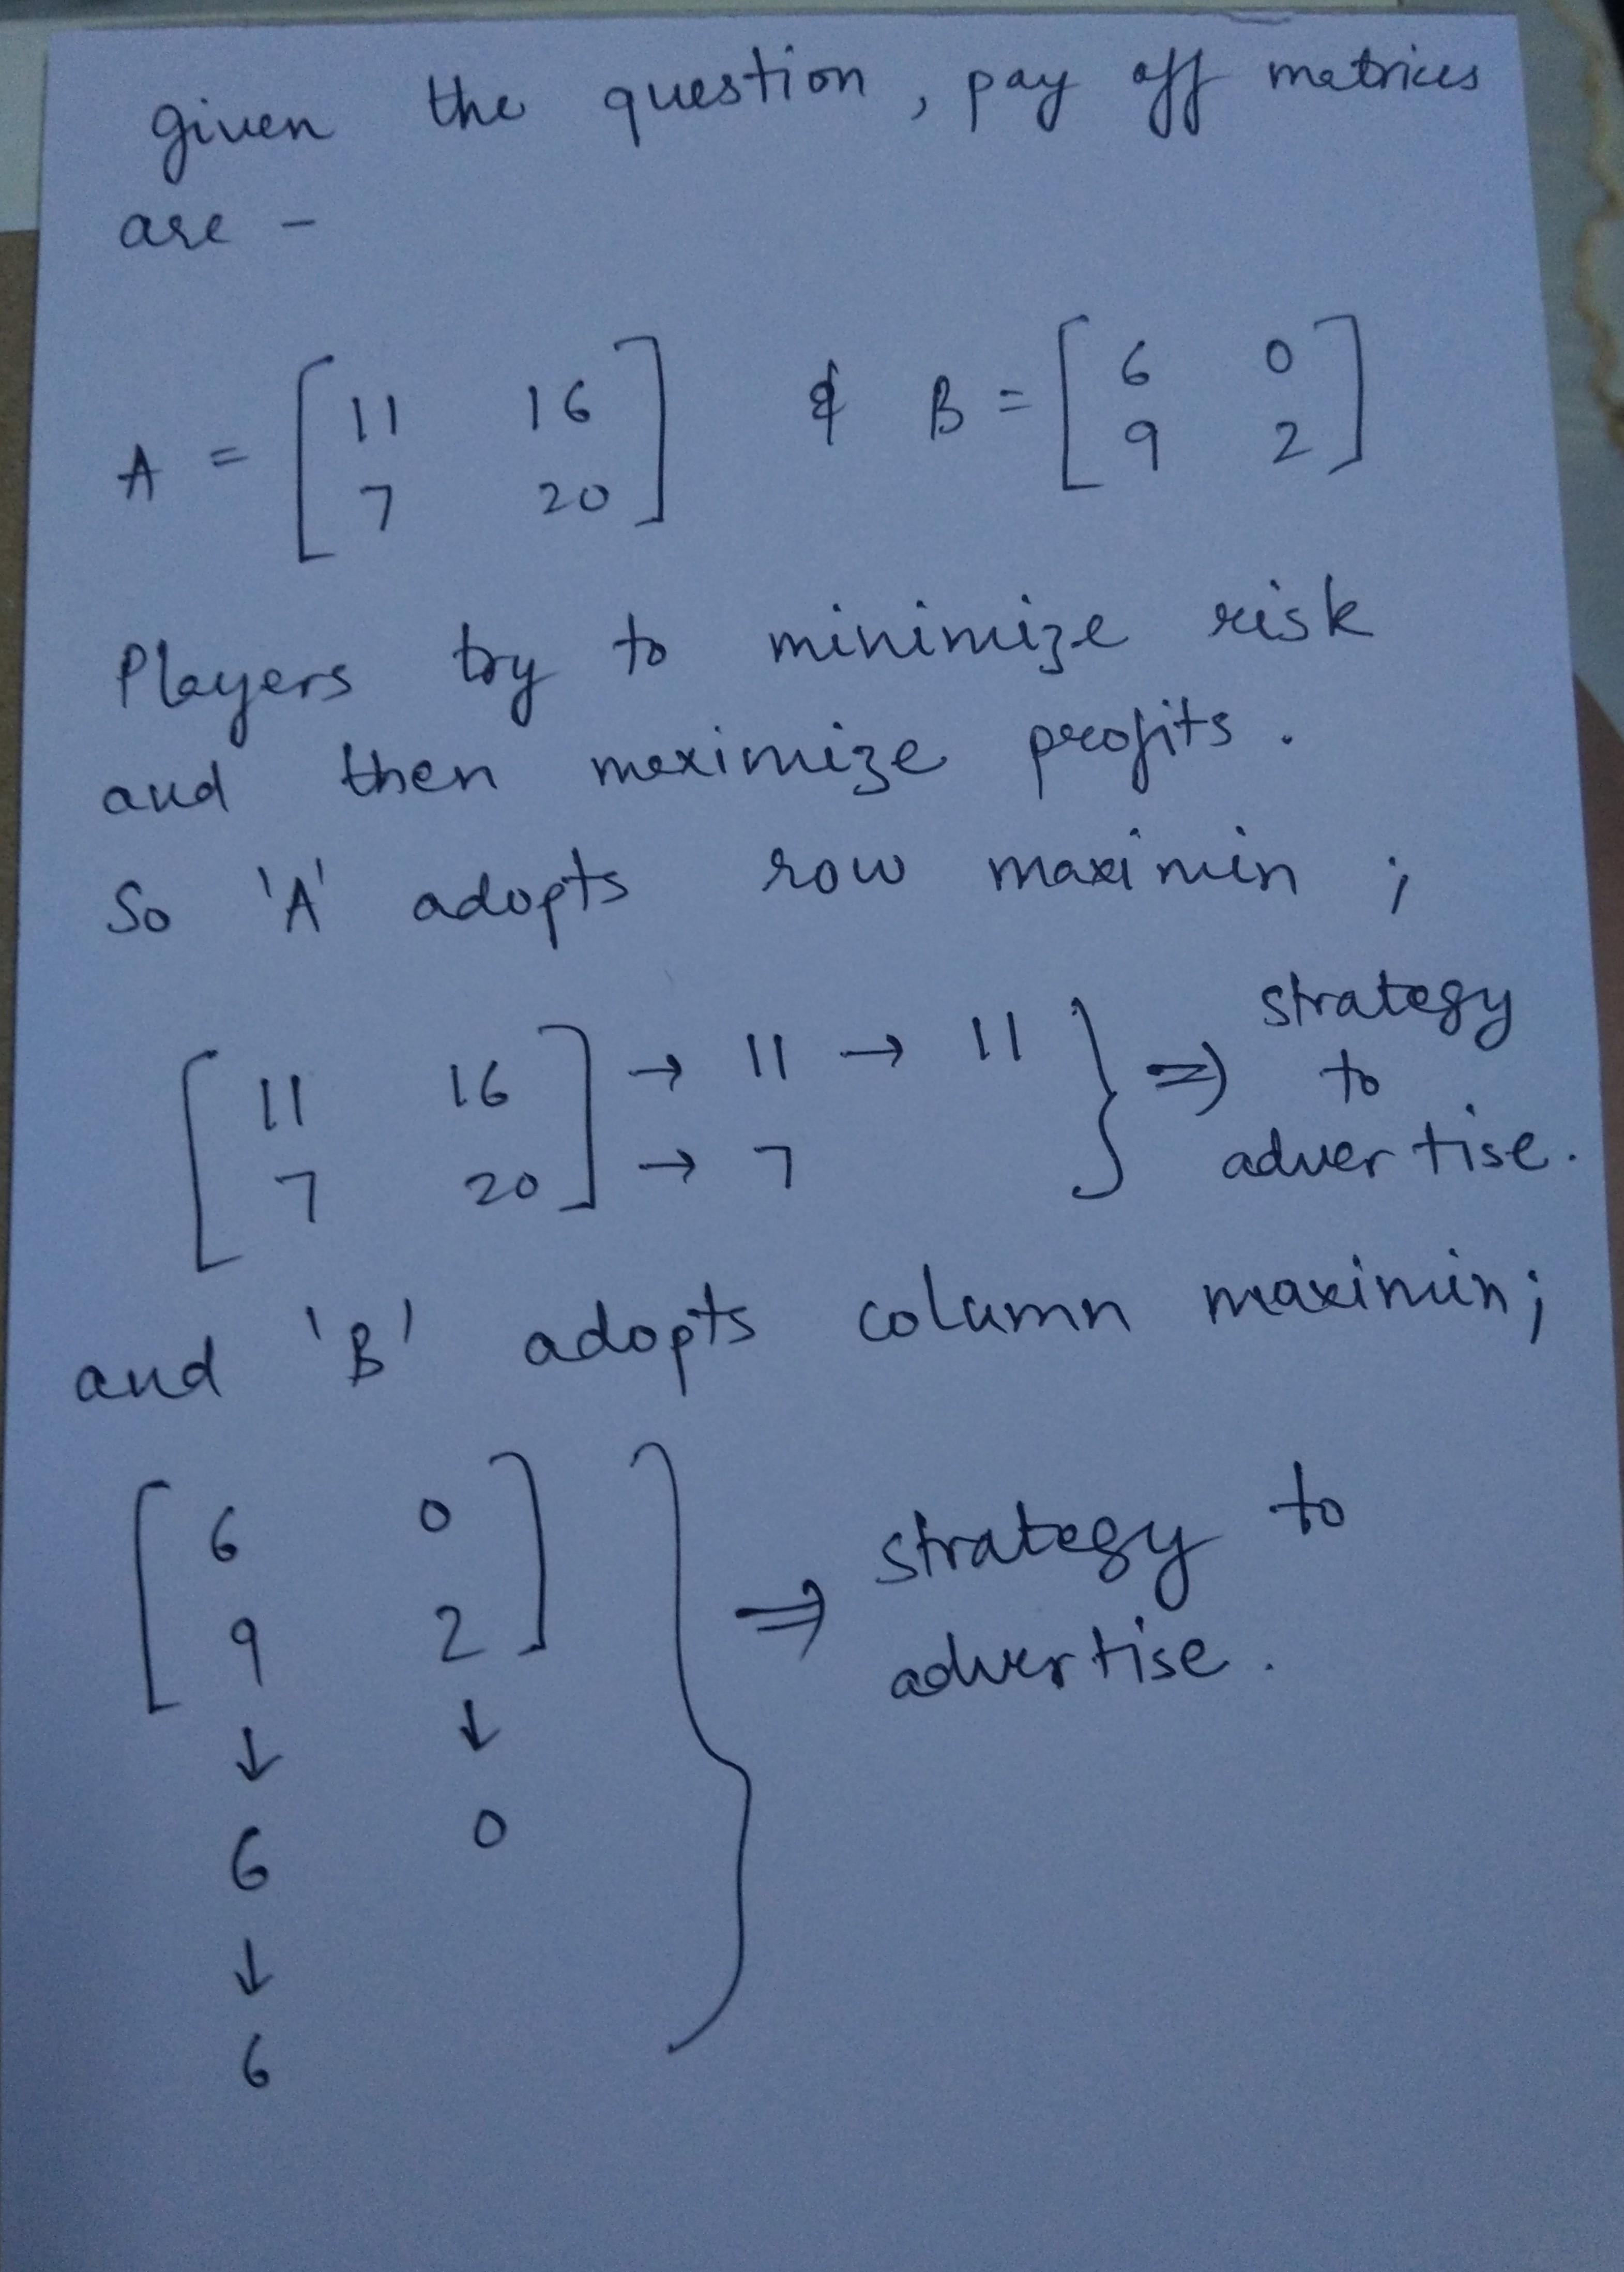 given the question, pay off matrices
are -
A = [ 11 16 ] & B = [ 6 0 ]
7 20 9 2
Players try to minimize risk
and then maximize profits.
So 'A' adopts row maximin ;
[ 11 16 ] → 11 → 11 } ⇒ strategy
to
7 20 → 7 advertise.
and 'B' adopts column maximin;
[ 6 0 ] } ⇒ strategy to
9 2 advertise.
↓ ↓
6 0
↓
6